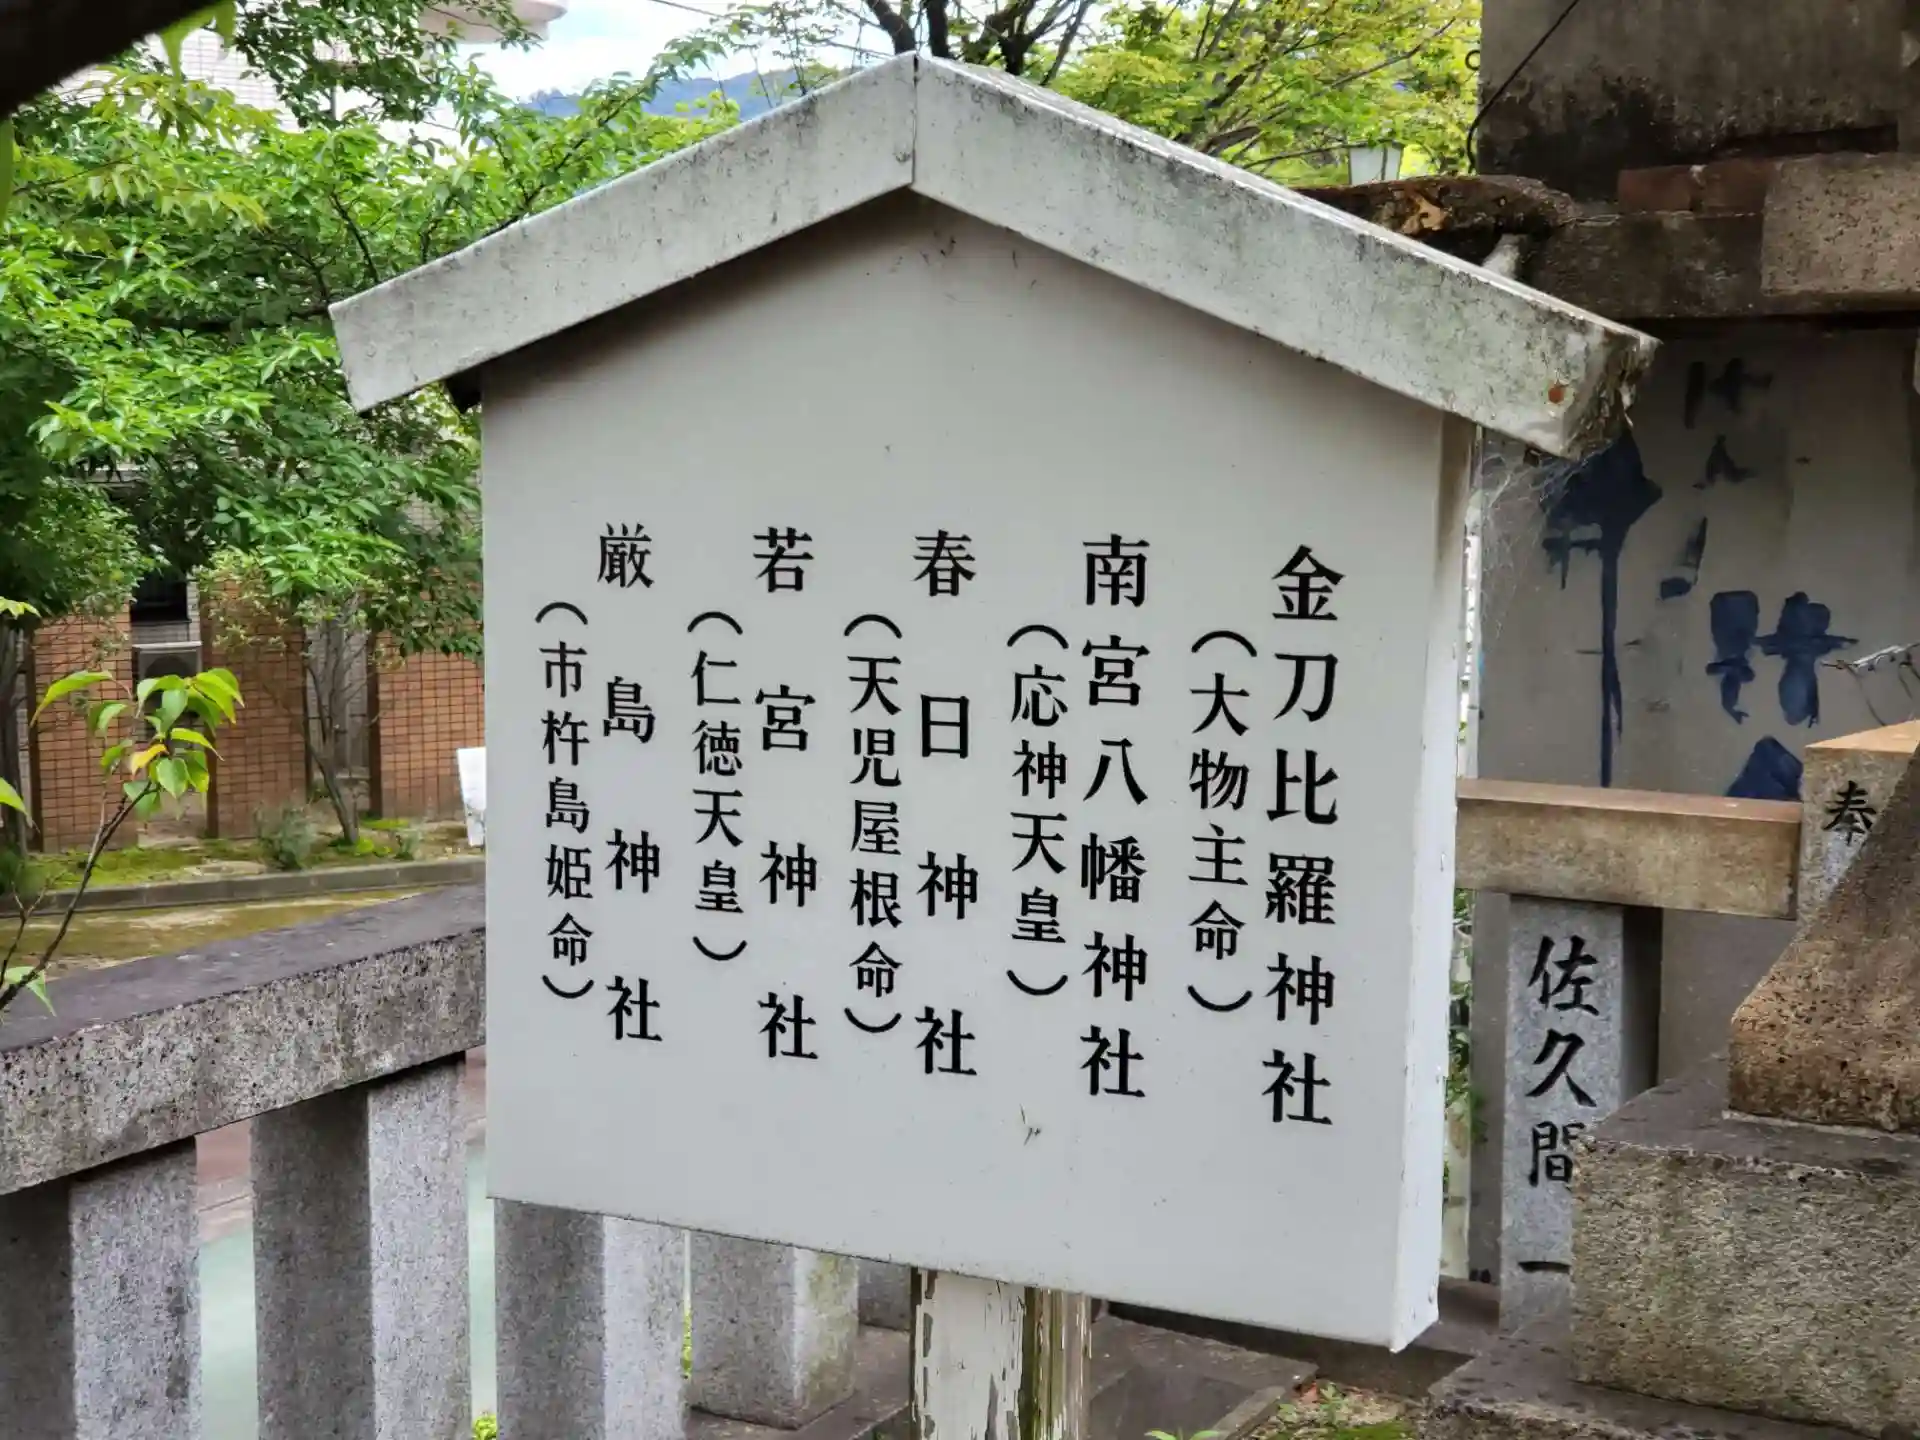 金刀比羅神社
（大物主命）
南宮八幡神社
（応神天皇）
春日神社
（天児屋根命）
若宮神社
（仁徳天皇）
厳島神社
（市杵島姫命）
奉
佐久間一